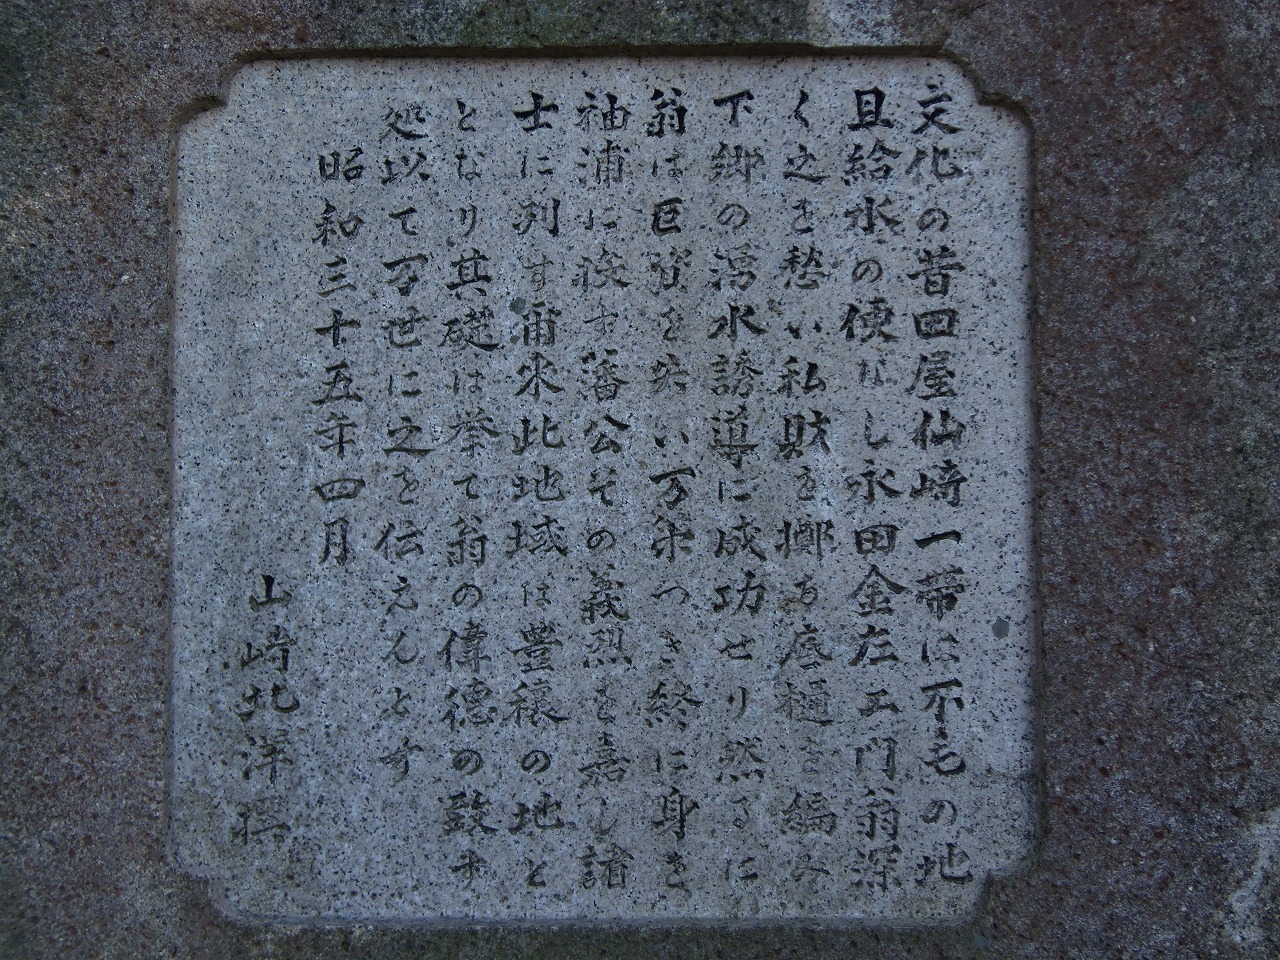 文化の昔田屋仙崎一帯は不毛の地
且給水の便なし永田金左エ門翁深
く之を愁い私財を擲ち底樋を編み
下郷の湧水誘導に成功せり然るに
翁は巨資を失い万策つき終に身を
袖浦に投す藩公その義烈を嘉し諸
士に列す爾来此地域は豊穣の地と
となり其礎は挙て翁の偉徳の致す
処以て万世に之を伝えんとす
昭和三十五年四月
山崎北洋撰